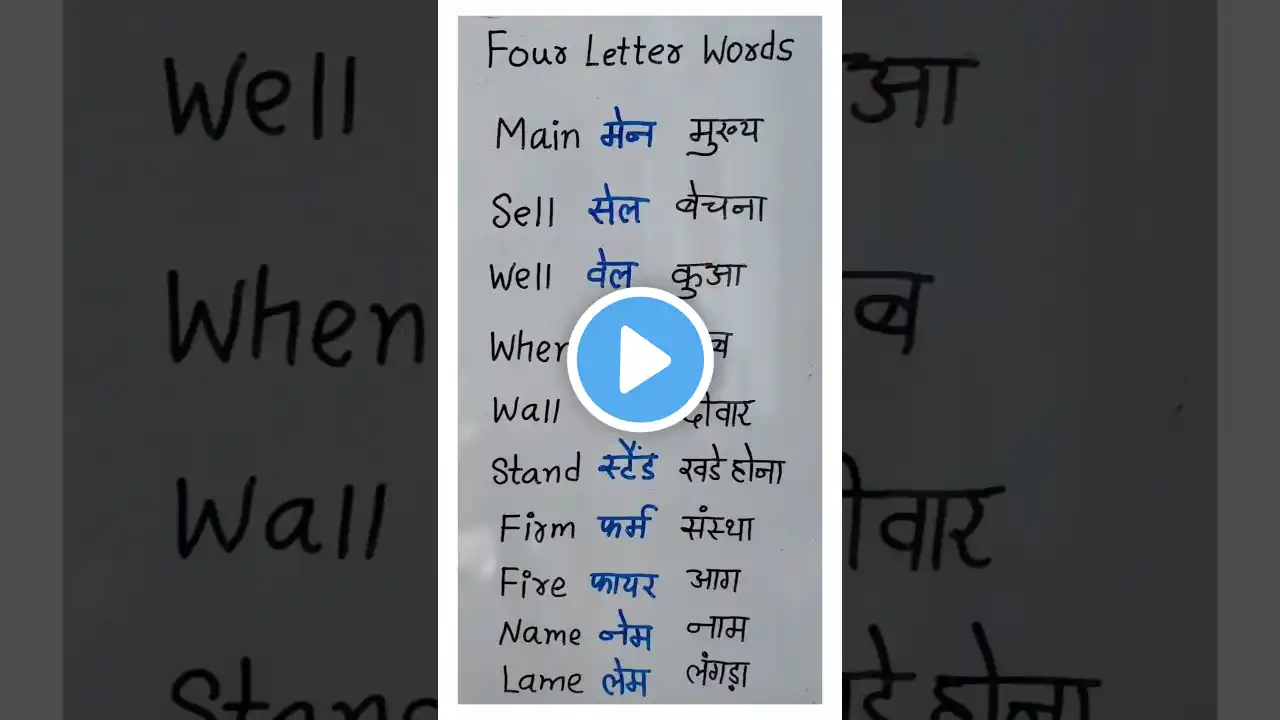 Four Letter Words
Main मेन मुख्य
Sell सेल बेचना
Well वेल कुआ
Wall दीवार
Stand स्टैंड खडे होना
Firm फर्म संस्था
Fire फायर आग
Name नेम नाम
Lame लेम लंगड़ा